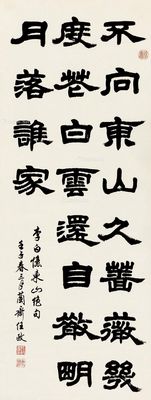 不向東山久薔薇幾
度花白雲還自散明
月落誰家
李白憶東山絕句
壬子春三月蘭齋任政